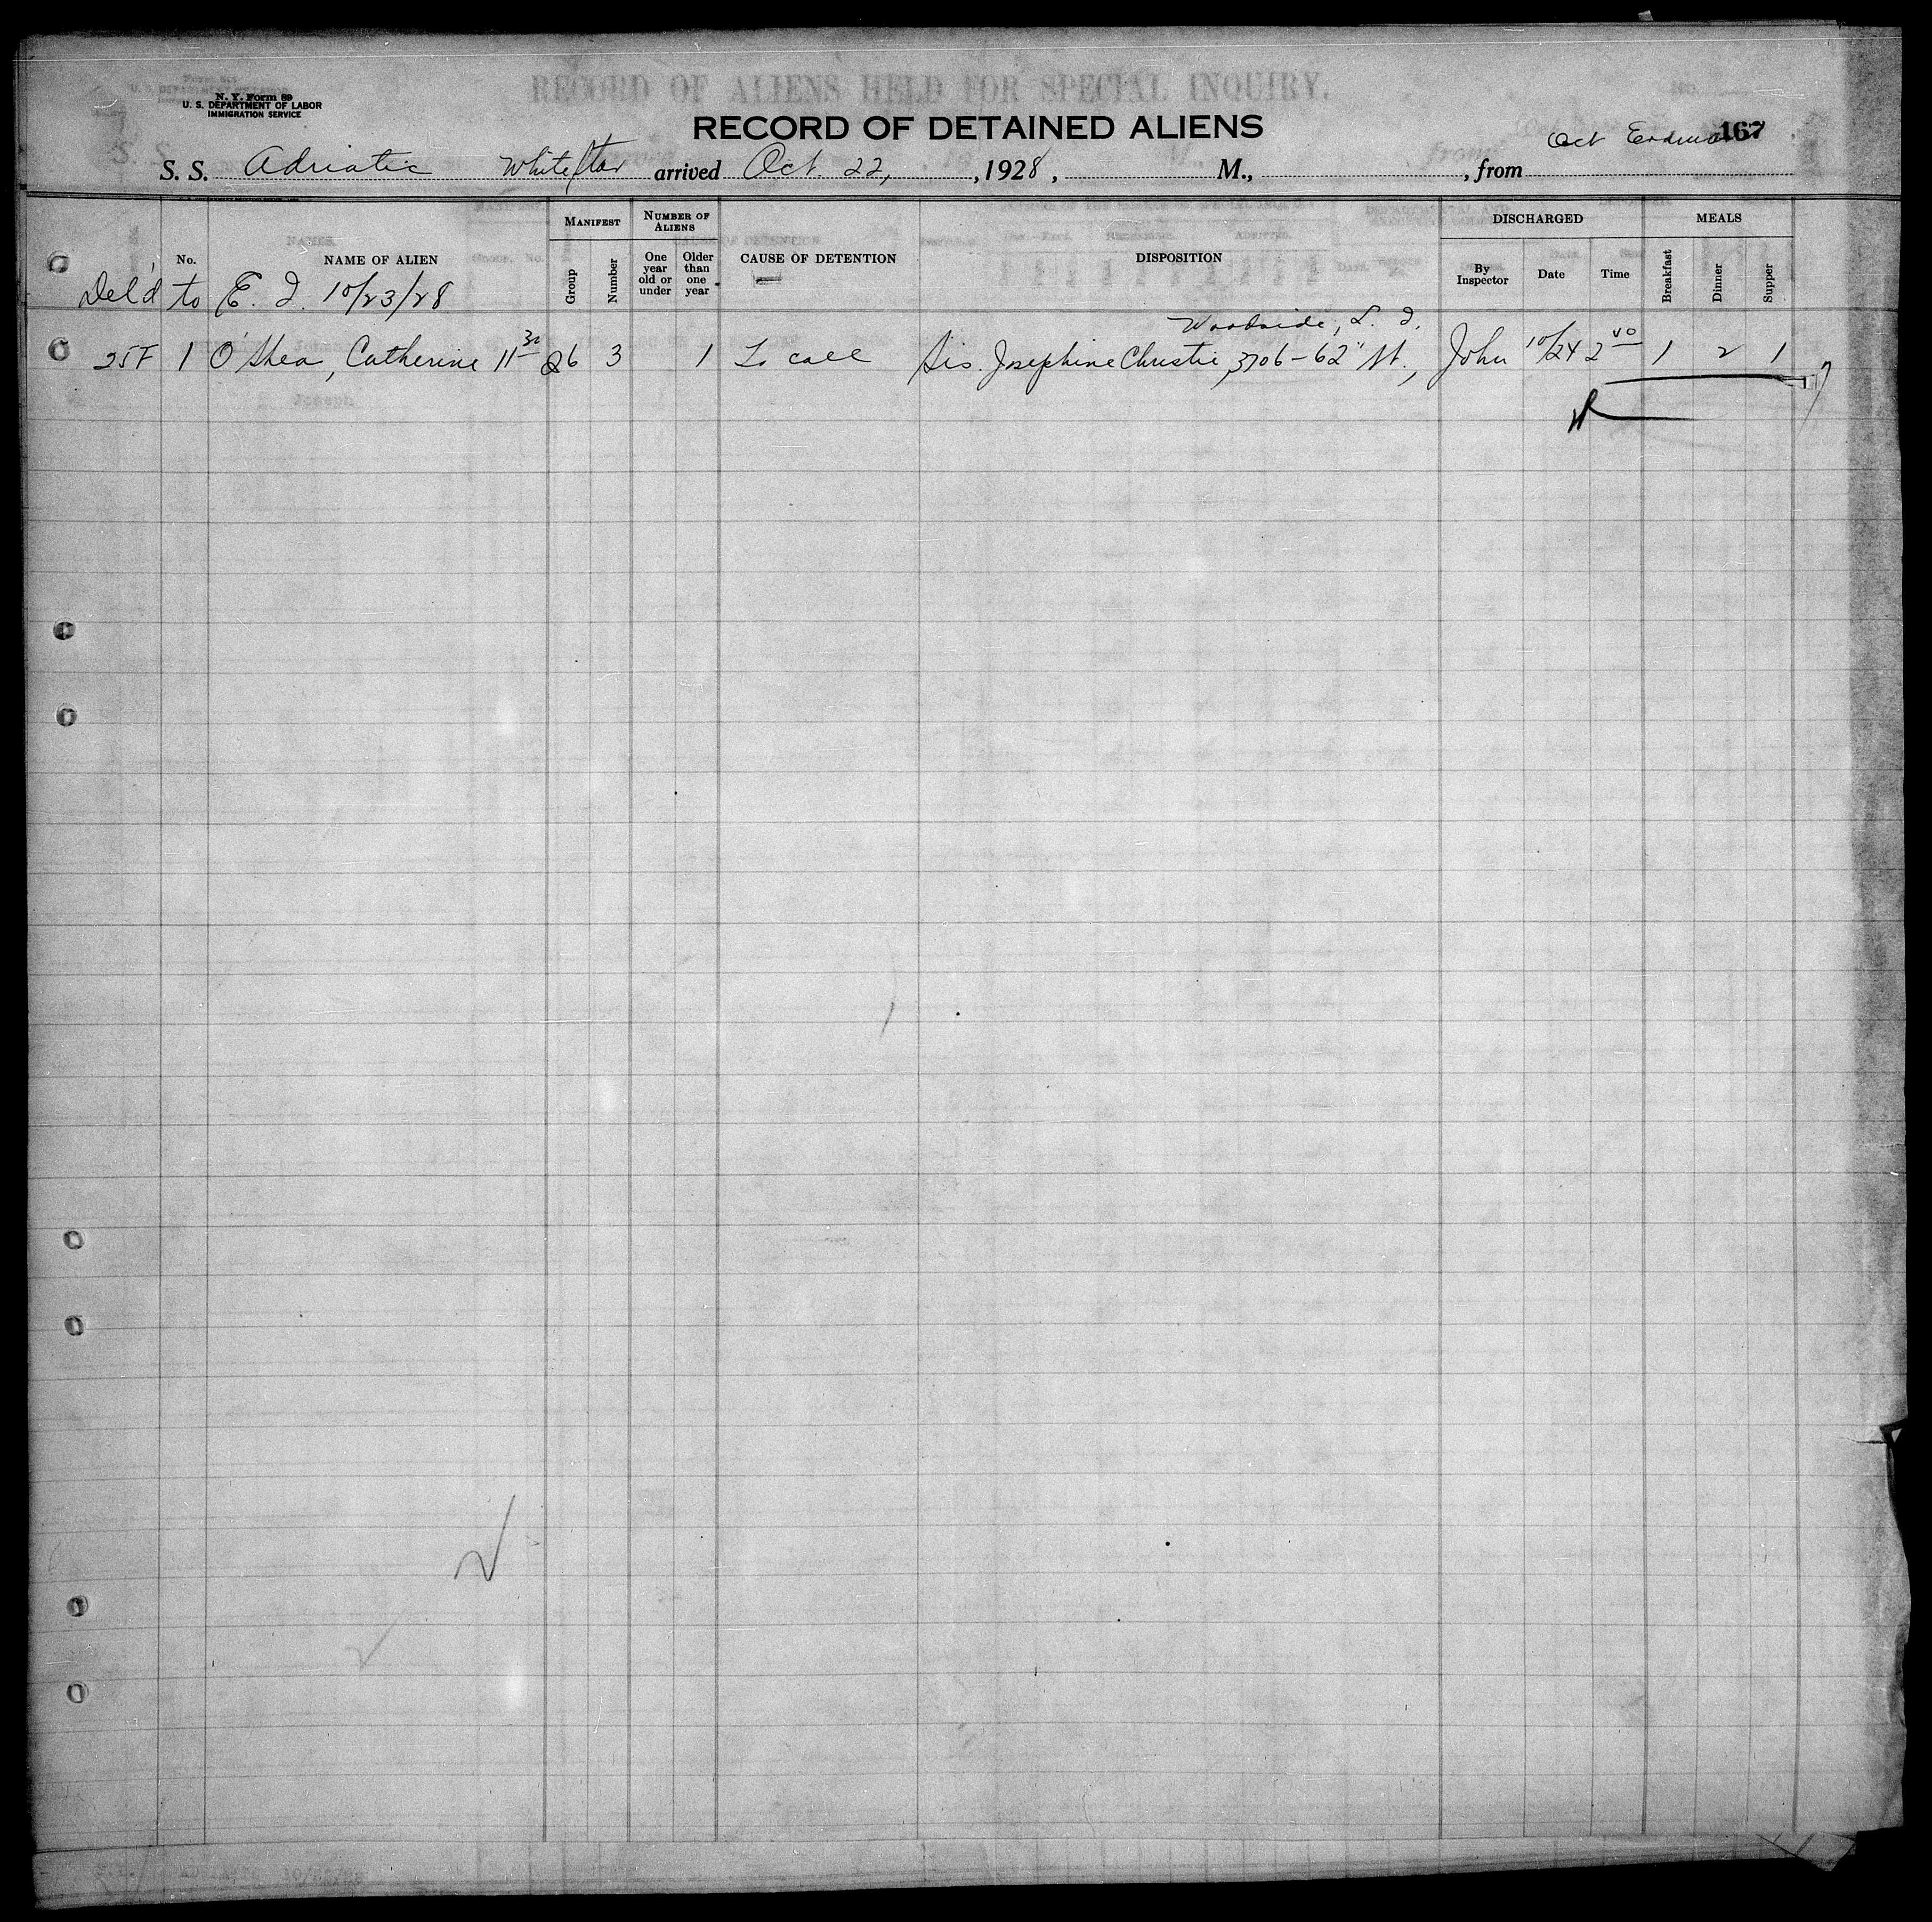 RECORD OF ALIENS HELD FOR SPECIAL INQUIRY.
N. Y. Form 89
U. S. DEPARTMENT OF LABOR
IMMIGRATION SERVICE
RECORD OF DETAINED ALIENS
167
S. S. Adriatic White Star arrived Oct. 22, , 1928, M., , from Oct
MANIFEST
NUMBER OF ALIENS
DISCHARGED
MEALS
No.
NAME OF ALIEN
Group
Number
One year old or under
Older than one year
CAUSE OF DETENTION
DISPOSITION
By Inspector
Date
Time
Breakfast
Dinner
Supper
Del'd to E. I. 10/23/28
Woodside, L. I.
25F 1 O'Shea, Catherine 11 30 26 3 1 To call Sis. Josephine Christie, 3706-62" St., John 10/24 2 40 1 2 1
Joseph